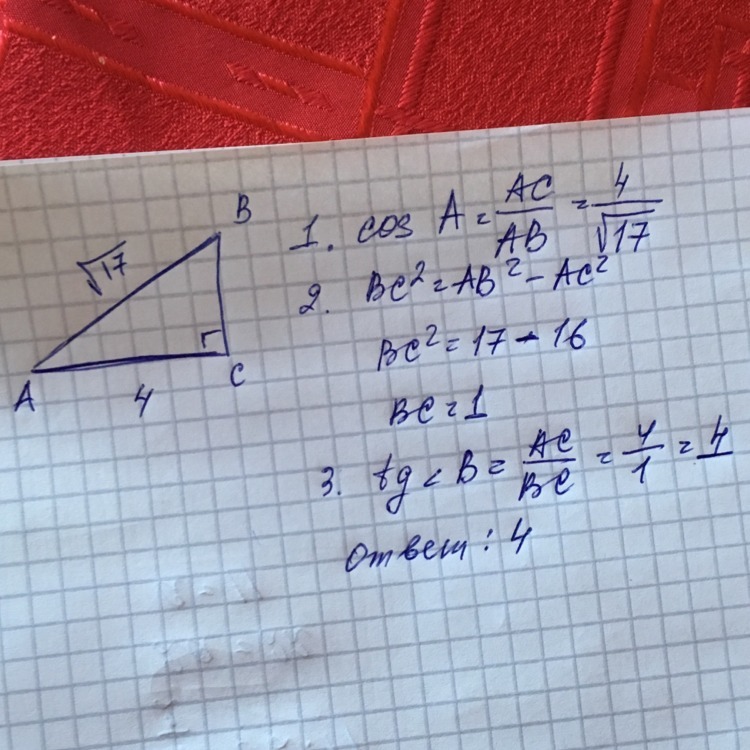 B
√17
A
4
C
1. cos A = AC/AB = 4/√17
2. BC² = AB² - AC²
BC² = 17 - 16
BC = 1
3. tg < B = AC/BC = 4/1 = 4
Ответ: 4